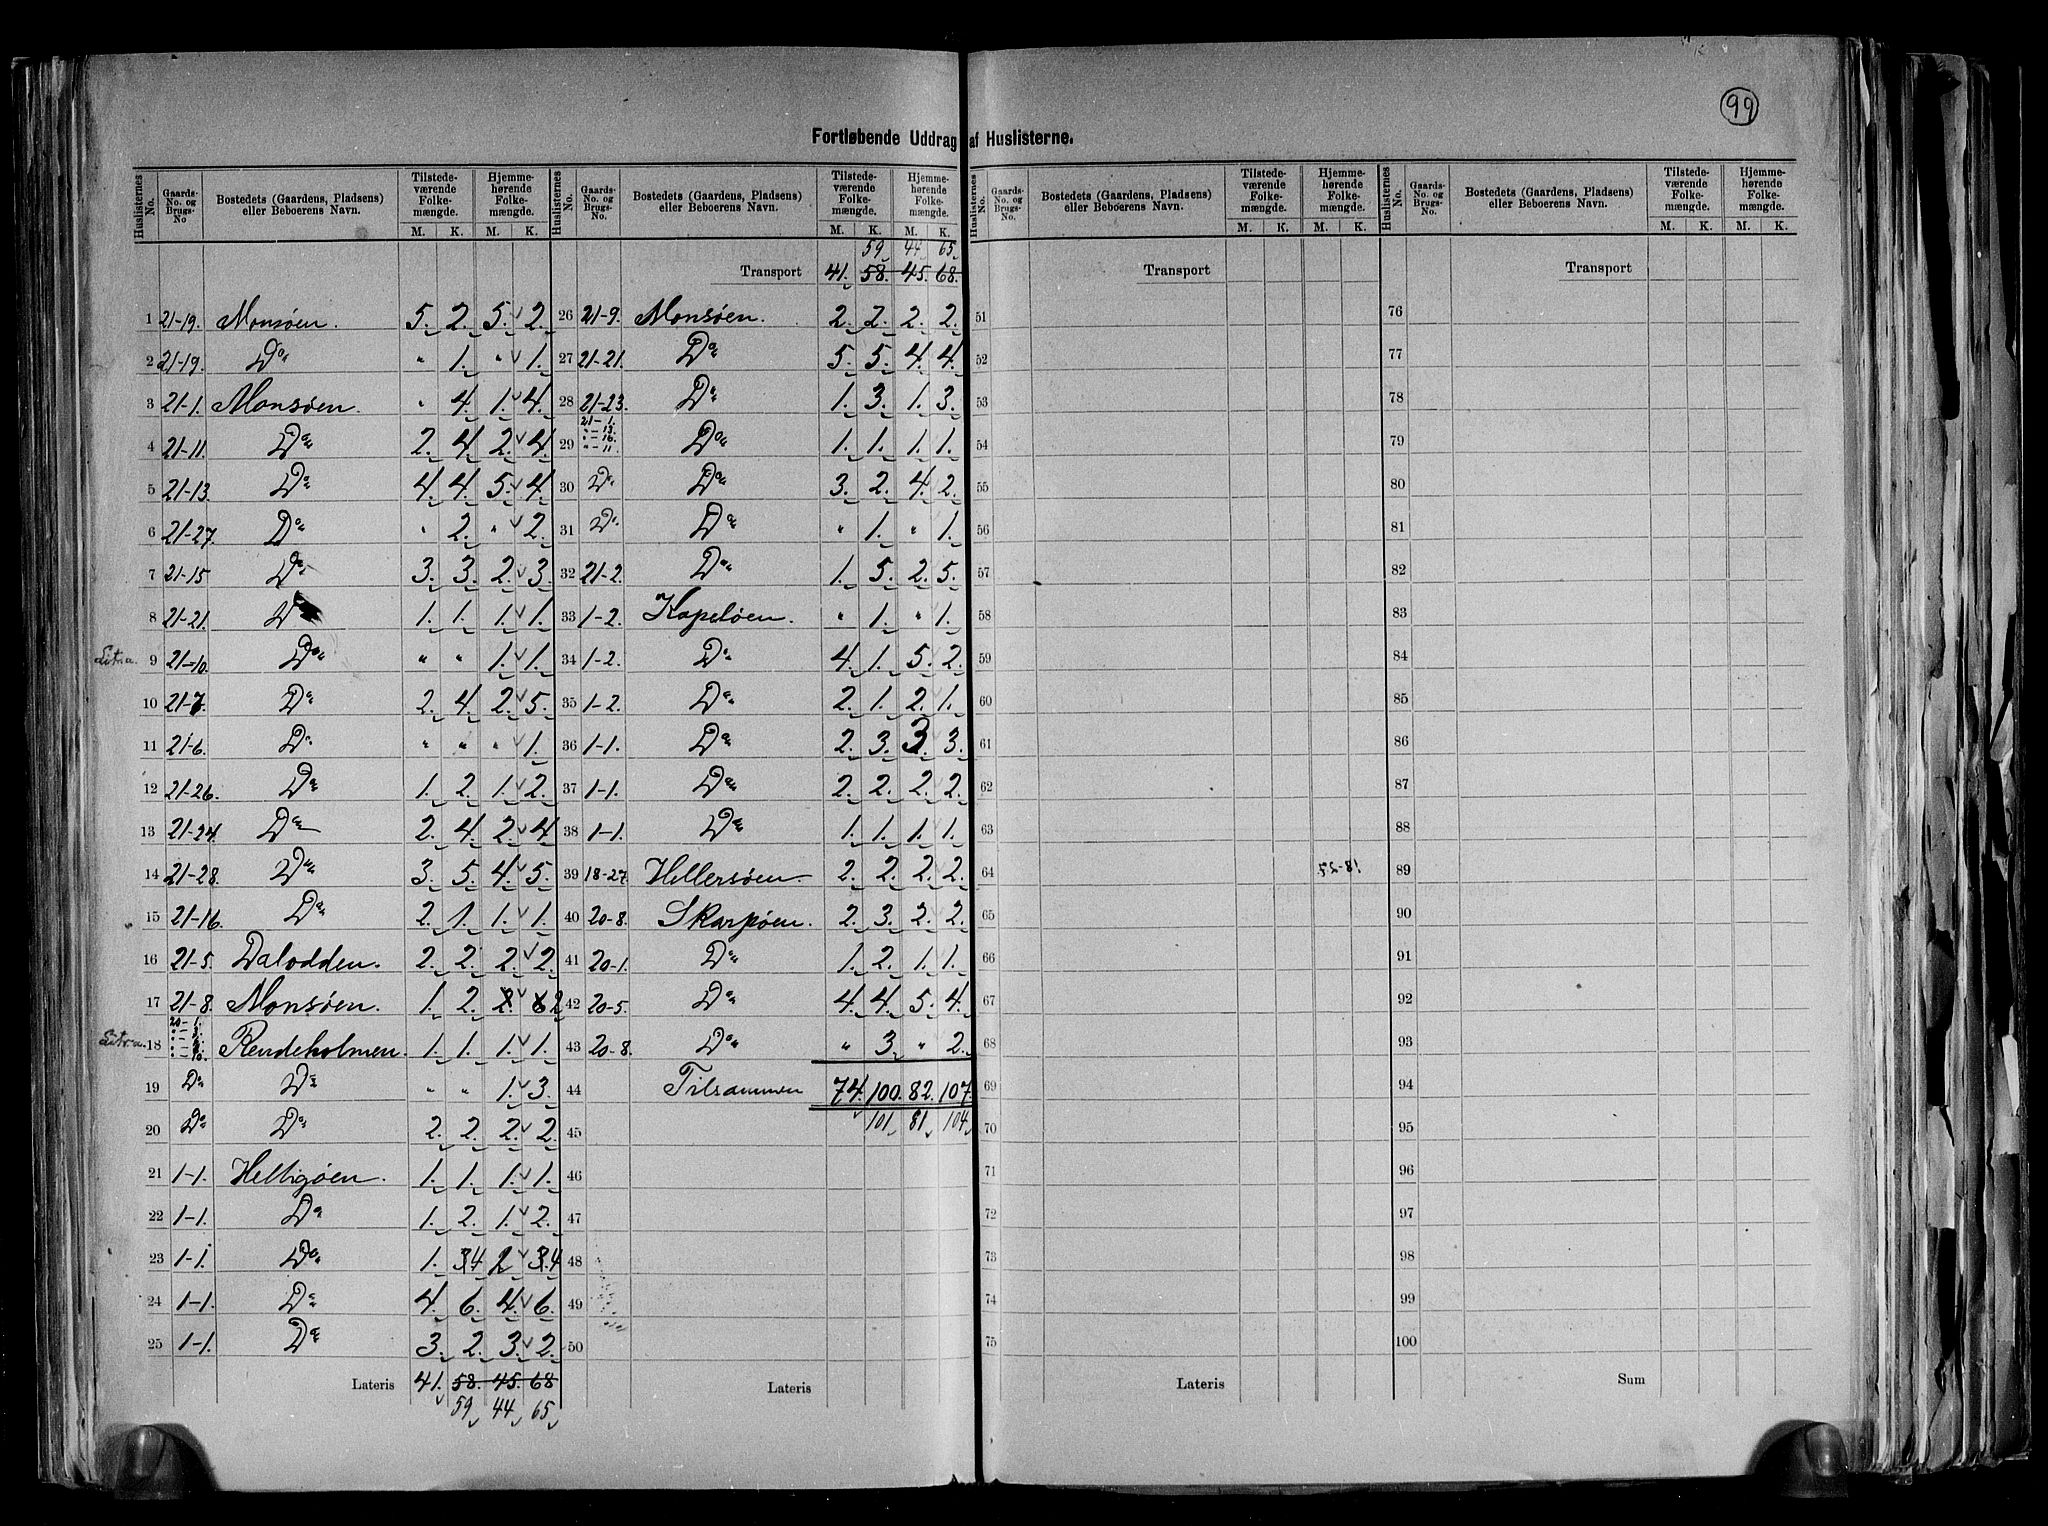 99
Fortløbende Uddrag af Huslisterne.
Huslisternes No. | Gaards-No. og Brugs-No | Bostedets (Gaardens, Pladsens) eller Beboerens Navn. | Tilstedeværende Folkemængde. M. K. | Hjemmehørende Folkemængde. M. K.
1 21-19. Monsøen. 5. 2. 5. 2.
2 21-19. Do „ 1. „ 1.
3 21-1. Monsøen. „ 4. 1. 4.
4 21-11. Do 2. 4. 2. 4.
5 21-13. Do 4. 4. 5. 4.
6 21-27. Do „ 2. „ 2.
7 21-15 Do 3. 3. 2. 3.
8 21-21. Do 1. 1. 1. 1.
9 21-10. Do „ „ 1. 1.
10 21-7. Do 2. 4. 2. 5.
11 21-6. Do „ „ „ 1.
12 21-26. Do 1. 2. 1. 2.
13 21-24. Do 2. 4. 2. 4.
14 21-28. Do 3. 5. 4. 5.
15 21-16. Do 2. 1. 1. 1.
16 21-5. Dalodden. 2. 2. 2. 2.
17 21-8. Monsøen. 1. 2. 2
18 Rendeholmen. 1. 1. 1. 1.
19 Do Do „ „ 1. 3.
20 Do Do 2. 2. 2. 2.
21 1-1. Helligøen. 1. 1. 1. 1.
22 1-1. Do 1. 2. 1. 2.
23 1-1. Do 1. 4 2 4
24 1-1. Do 4. 6. 4. 6.
25 1-1. Do 3. 2. 3. 2.
Lateris 41. 58. 45. 68
59 44 65
Huslisternes No. | Gaards-No. og Brugs-No. | Bostedets (Gaardens, Pladsens) eller Beboerens Navn. | Tilstedeværende Folkemængde. M. K. | Hjemmehørende Folkemængde. M. K.
59 44 65
Transport 41. 58. 45. 68.
26 21-9. Monsøen. 2. 2. 2. 2.
27 21-21. Do 5. 5. 4. 4.
28 21-23. Do 1. 3. 1. 3.
21-1.
„-13.
„-16.
29 „-11. Do 1. 1. 1. 1.
30 Do Do 3. 2. 4. 2.
31 Do Do „ 1. „ 1.
32 21-2. Do 1. 5. 2. 5.
33 1-2. Kapeløen. „ 1. „ 1.
34 1-2. Do 4. 1. 5. 2.
35 1-2. Do 2. 1. 2. 1.
36 1-1. Do 2. 3. 3. 3.
37 1-1. Do 2. 2. 2. 2.
38 1-1. Do 1. 1. 1. 1.
39 18-27. Hellersøen. 2. 2. 2. 2.
40 20-8. Skarpøen. 2. 3. 2. 2.
41 20-1. Do 1. 2. 1. 1.
42 20-5. Do 4. 4. 5. 4.
43 20-8. Do „ 3. „ 2.
44 Tilsammen 74. 100. 82. 107.
45 101 81 104
46
47
48
49
50
Lateris
Huslisternes No. | Gaards-No. og Brugs-No. | Bostedets (Gaardens, Pladsens) eller Beboerens Navn. | Tilstedeværende Folkemængde. M. K. | Hjemmehørende Folkemængde. M. K.
Transport
51
52
53
54
55
56
57
58
59
60
61
62
63
64
65
66
67
68
69
70
71
72
73
74
75
Lateris
Huslisternes No. | Gaards-No. og Brugs-No. | Bostedets (Gaardens, Pladsens) eller Beboerens Navn. | Tilstedeværende Folkemængde. M. K. | Hjemmehørende Folkemængde. M. K.
Transport
76
77
78
79
80
81
82
83
84
85
86
87
88
89
90
91
92
93
94
95
96
97
98
99
100
Sum